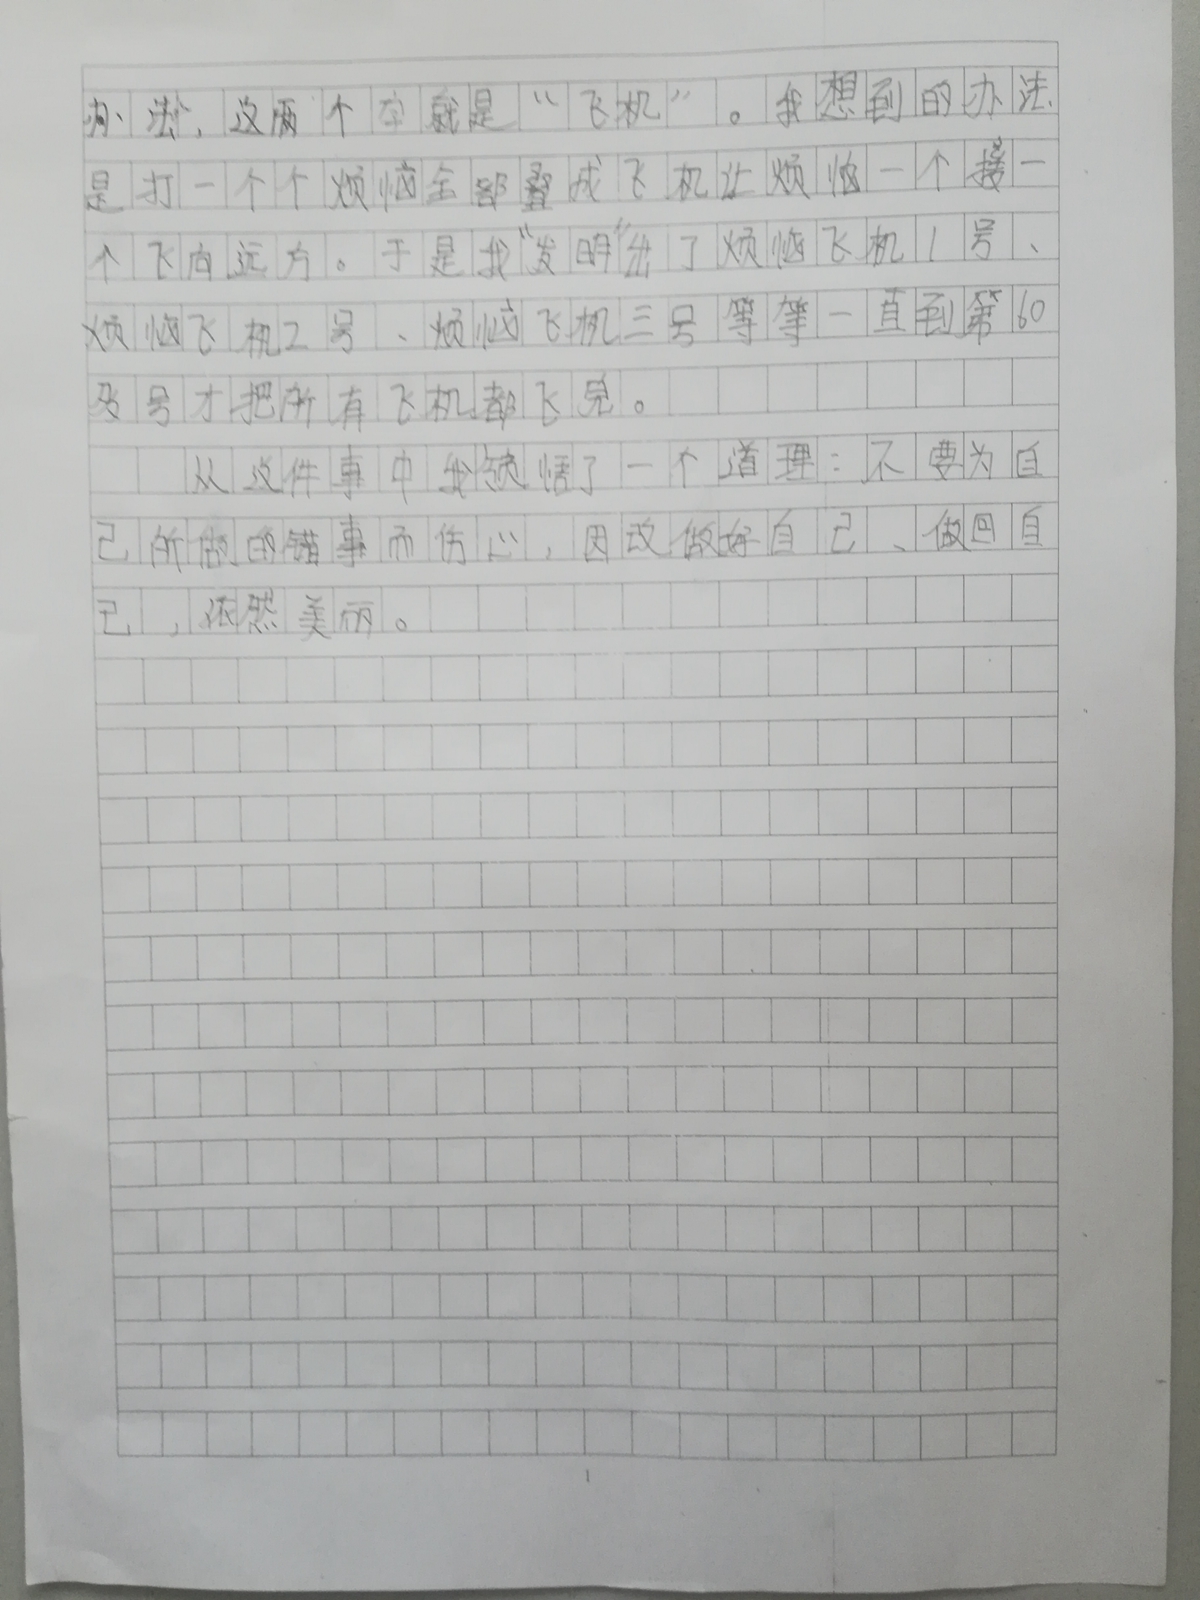 办法，这两个字就是“飞机”。我想到的办法
是打一个个烦恼全部叠成飞机让烦恼一个接一
个飞向远方。于是我“发明”出了烦恼飞机1号、
烦恼飞机2号、烦恼飞机三号等等一直到第60
号才把所有飞机都飞完。
从这件事中我领悟了一个道理：不要为自
己所做的错事而伤心，因改做好自己、做回自
己，依然美丽。
1